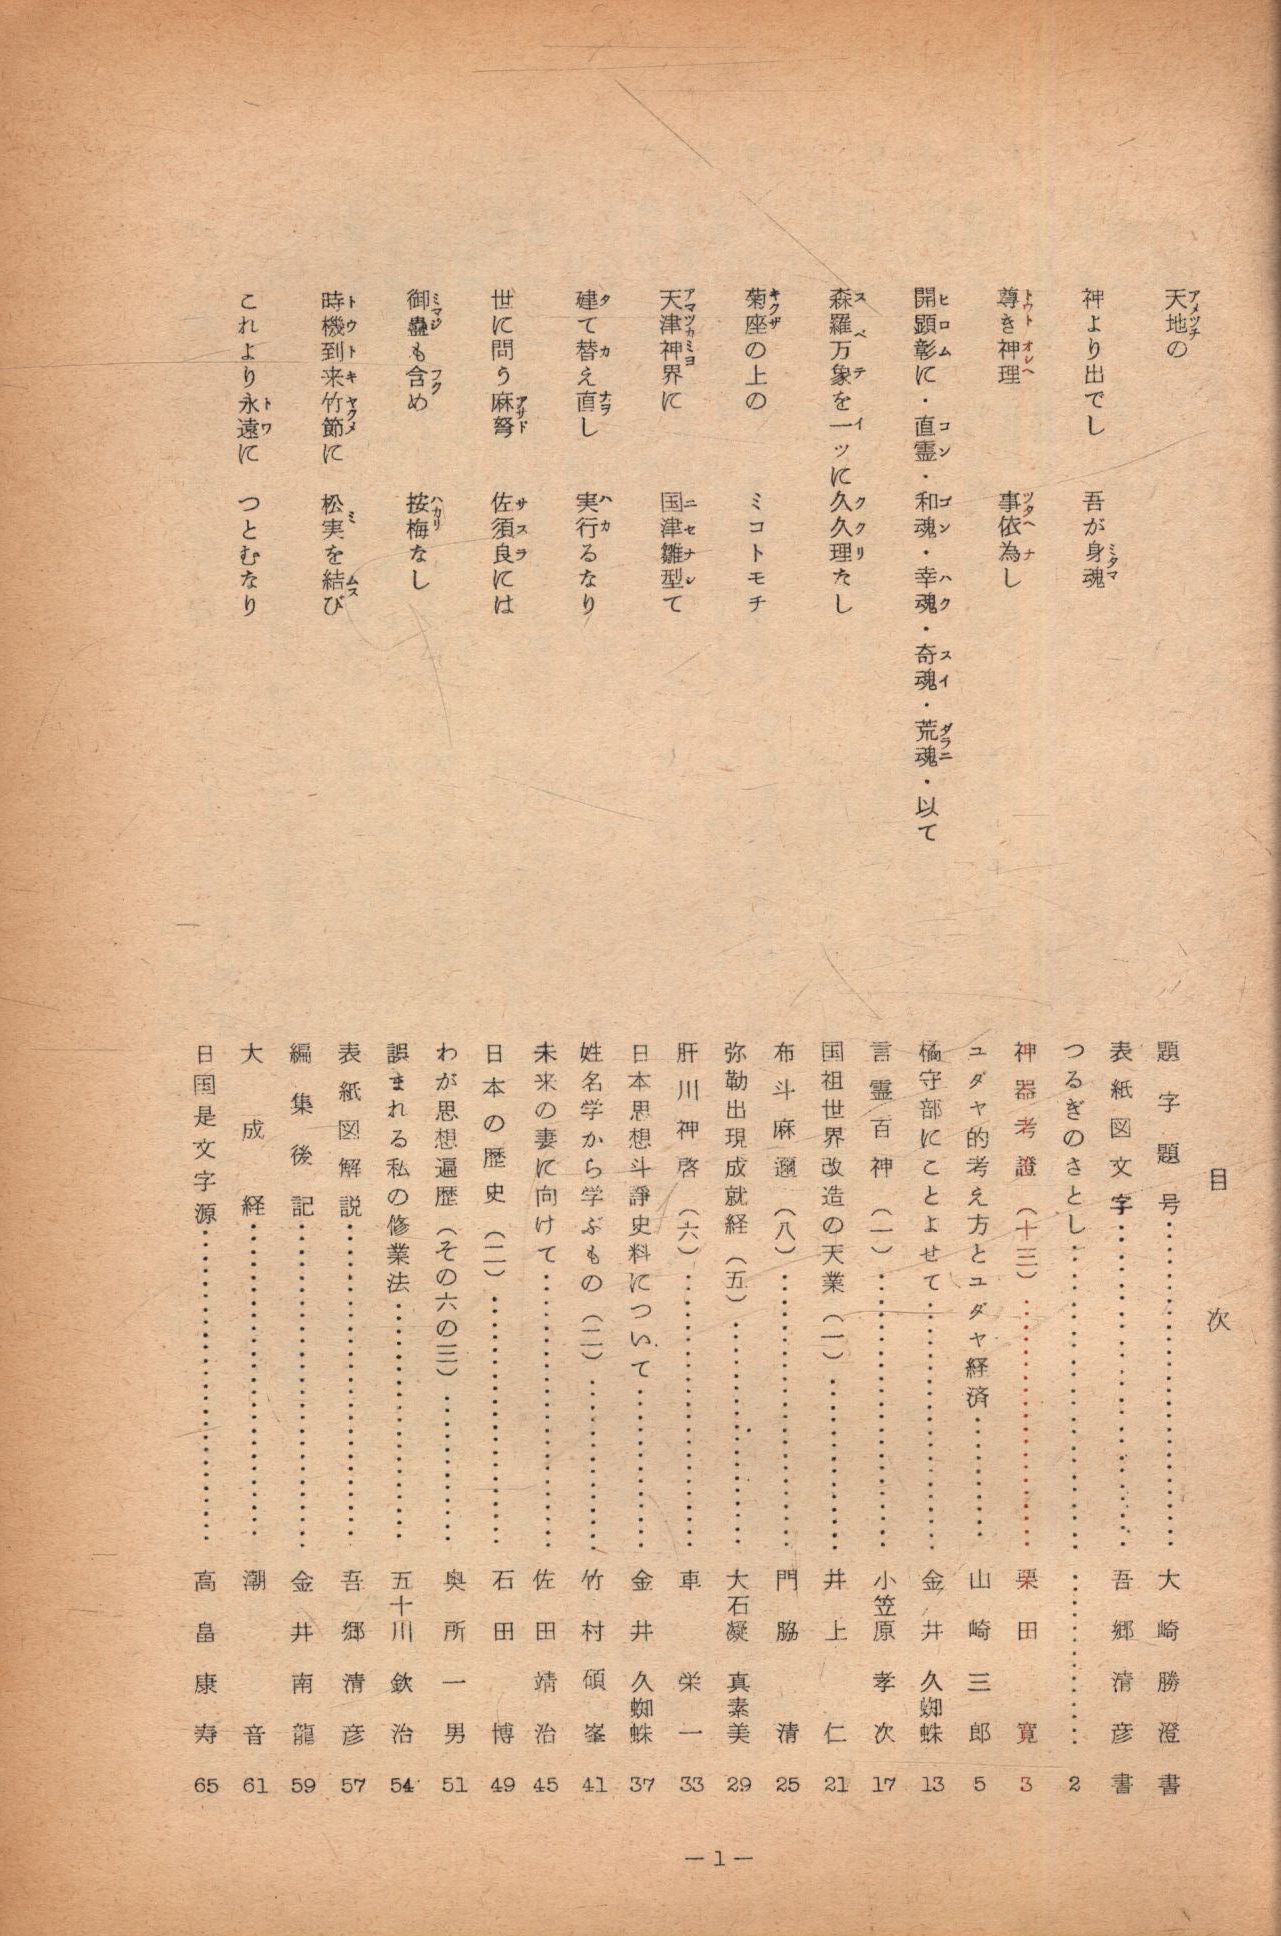 天地の
神より出でし　吾が身魂
尊き神理　事依為し
開顕彰に・直霊・和魂・幸魂・奇魂・荒魂・以て
森羅万象を一ッに久久理たし
菊座の上の　ミコトモチ
天津神界に　国津雛型て
建て替え直し　実行るなり
世に問う麻弩　佐須良には
御蠱も含め　按梅なし
時機到来竹節に　松実を結び
これより永遠に　つとむなり
目次
題字題号……………大崎勝澄書
表紙図文字……………吾郷清彦書
つるぎのさとし…………… 2
神器考證（十三）……………栗田寛 3
ユダヤ的考え方とユダヤ経済……………山崎三郎 5
橘守部にことよせて……………金井久蜘蛛 13
言霊百神（一）……………小笠原孝次 17
国祖世界改造の天業（一）……………井上仁 21
布斗麻邇（八）……………門脇清 25
弥勒出現成就経（五）……………大石凝真素美 29
肝川神啓（六）……………車栄一 33
日本思想斗諍史料について……………金井久蜘蛛 37
姓名学から学ぶもの（二）……………竹村碩峯 41
未来の妻に向けて……………佐田靖治 45
日本の歴史（二）……………石田博 49
わが思想遍歴（その六の三）……………奥所一男 51
誤まれる私の修業法……………五十川欽治 54
表紙図解説……………吾郷清彦 57
編集後記……………金井南龍 59
大成経……………潮音 61
日国是文字源……………高畠康寿 65
―1―